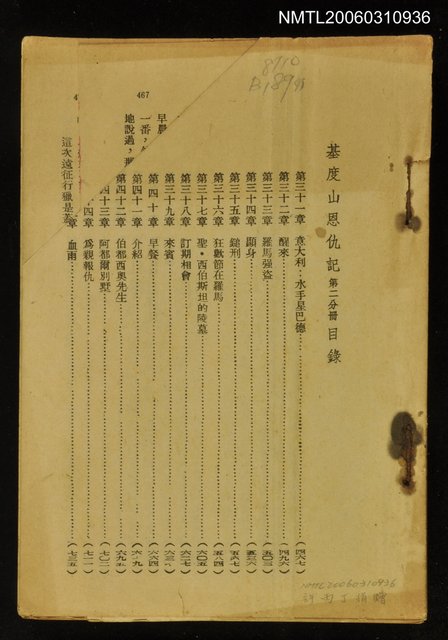 NMTL20060310936
8710
基度山恩仇記 第二分冊 目錄
第三十一章 意大利·水手星巴德 (四六七)
第三十二章 醒來 (四九六)
第三十三章 羅馬強盜 (五〇三)
第三十四章 顯身
第三十五章 鎚刑
第三十六章 狂歡節在羅馬
第三十七章 聖·西伯斯坦的陵墓 (六〇五)
第三十八章 訂期相會 (六二七)
第三十九章 來賓
第四十章 早餐 (六六四)
第四十一章 介紹
第四十二章 伯都西奧先生
四十三章 阿都爾別墅 (七〇二)
四章 為親報仇
章 血雨 (七三五)
467
早
一番,
地說過,
這次遠征行獵是蓋
NMTL20060310936
許丙丁捐贈